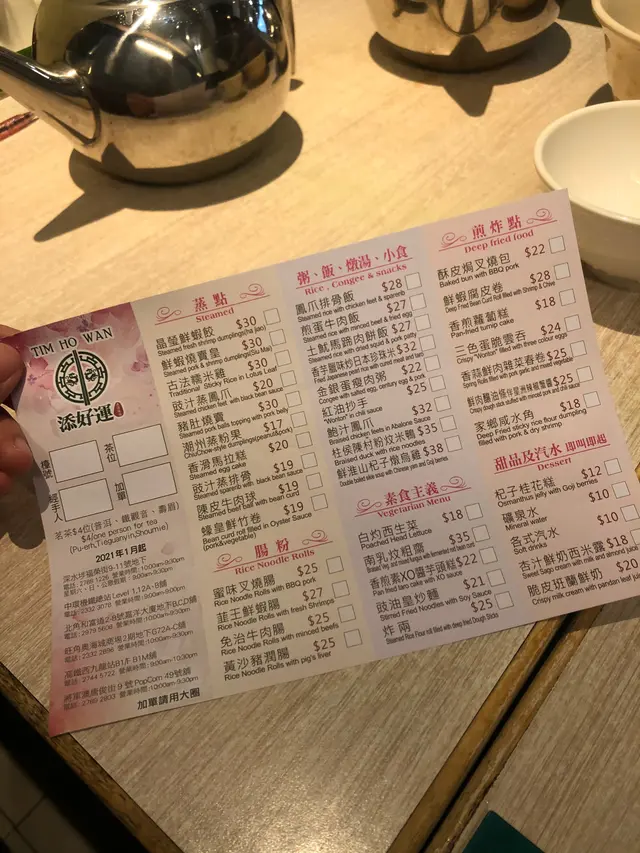 TIM HO WAN
添好運
檯號
茶位
經手人
加單
茗茶$4位(普洱、鐵觀音、壽眉)
$4/one person for tea
(Pu-erh,Tieguanyin,Shoumei)
2021年1月起
深水埗福榮街9-11號地下
電話 : 2788 1226 營業時間:10:00am-9:30pm
星期六、日、公眾假期 : 9:00am-9:30pm
中環機鐵總站 Level 1,12A-B舖
電話 : 2332 3078 營業時間:9:00am-9:30pm
北角和富道2-8號嘉洋大廈地下B,C,D舖
電話 : 2979 5608 營業時間:10:00am-9:30pm
旺角奧海城商場2期地下G72A-C舖
電話 : 2332 2896
高鐵西九龍站B1/F B1M舖
電話 : 2744 5722
將軍澳唐俊街9號 PopCorn 49號舖
電話 : 2789 2833 營業時間:10:00am-9:30pm
加單請用大圈
蒸點
Steamed
晶瑩鮮蝦餃 $30
Steamed fresh shrimp dumplings(ha jiao)
鮮蝦燒賣皇 $30
Steamed pork & shrimp dumplings(Siu Mai)
古法糯米雞 $30
Traditional Sticky Rice in Lotus Leaf
豉汁蒸鳳爪 $20
Steamed chicken feet with black bean sauce
豬肚燒賣 $30
Steamed pork balls topping with pork belly
潮州蒸粉果 $17
ChiuChow-style dumplings(peanuts&pork)
香滑馬拉糕 $20
Steamed egg cake
豉汁蒸排骨 $19
Steamed sparerib with black bean sauce
陳皮牛肉球 $19
Steamed beef ball with bean curd
蠔皇鮮竹卷 $19
Bean curd roll filled in Oyster Sauce
(pork&vegetable)
腸粉
Rice Noodle Rolls
蜜味叉燒腸 $25
Rice Noodle Rolls with BBQ pork
韮王鮮蝦腸 $27
Rice Noodle Rolls with fresh Shrimps
免治牛肉腸 $25
Rice Noodle Rolls with minced beefs
黃沙豬潤腸 $25
Rice Noodle Rolls with pig's liver
粥、飯、燉湯、小食
Rice , Congee & snacks
鳳爪排骨飯 $28
Steamed rice with chicken feet & sparerib
煎蛋牛肉飯 $27
Steamed rice with minced beef & fried egg
土魷馬蹄肉餅飯 $27
Steamed rice with dried squid & pork patty
香芋臘味炒日本珍珠米 $32
金銀蛋瘦肉粥 $22
Congee with salted egg, century egg & pork
紅油抄手 $25
"Wonton" in chili sauce
鮑汁鳳爪 $32
Braised chicken feets in Abalone Sauce
柱侯陳村粉炆米鴨 $35
Braised duck with rice noodles
鮮淮山杞子燉烏雞 $38
Double boiled silkie soup with Chinese yam and Goji berries
素食主義
Vegetarian Menu
白灼西生菜 $18
Poached Head Lettuce
南乳炆粗腐 $35
香煎素XO醬芋頭糕 $22
Pan fried taro cake with XO sauce
豉油皇炒麵 $21
Stirred Fried Noodles with Soy Sauce
炸兩 $25
Steamed Rice Flour roll filled with deep fried Dough Sticks
煎炸點
Deep fried food
酥皮焗叉燒包 $22
Baked bun with BBQ pork
鮮蝦腐皮卷 $28
Deep Fried Bean Curd Roll filled with Shrimp & Chive
香煎蘿蔔糕 $18
Pan-fried turnip cake
三色蛋脆雲吞 $24
Crispy "Wonton" filled with three colour eggs
香蒜鮮肉雜菜春卷 $25
Spring Rolls filled with pork,garlic and mixed vegetable
$25
Crispy dough stick stuffed with minced pork and chili sauce
家鄉咸水角 $18
Deep Fried sticky rice flour dumpling
filled with pork & dry shrimp
甜品及汽水 即叫即起
Dessert
杞子桂花糕 $12
Osmanthus jelly with Goji berries
礦泉水 $10
Mineral water
各式汽水 $10
Soft drinks
杏汁鮮奶西米露 $18
Sweet Sago cream with milk and almond juice
脆皮班蘭鮮奶 $20
Crispy milk custard with pandan leaf